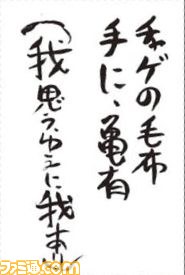 チャゲの毛布
手に、亀有
(我思う、ゆえに我在り
ファミ通.com